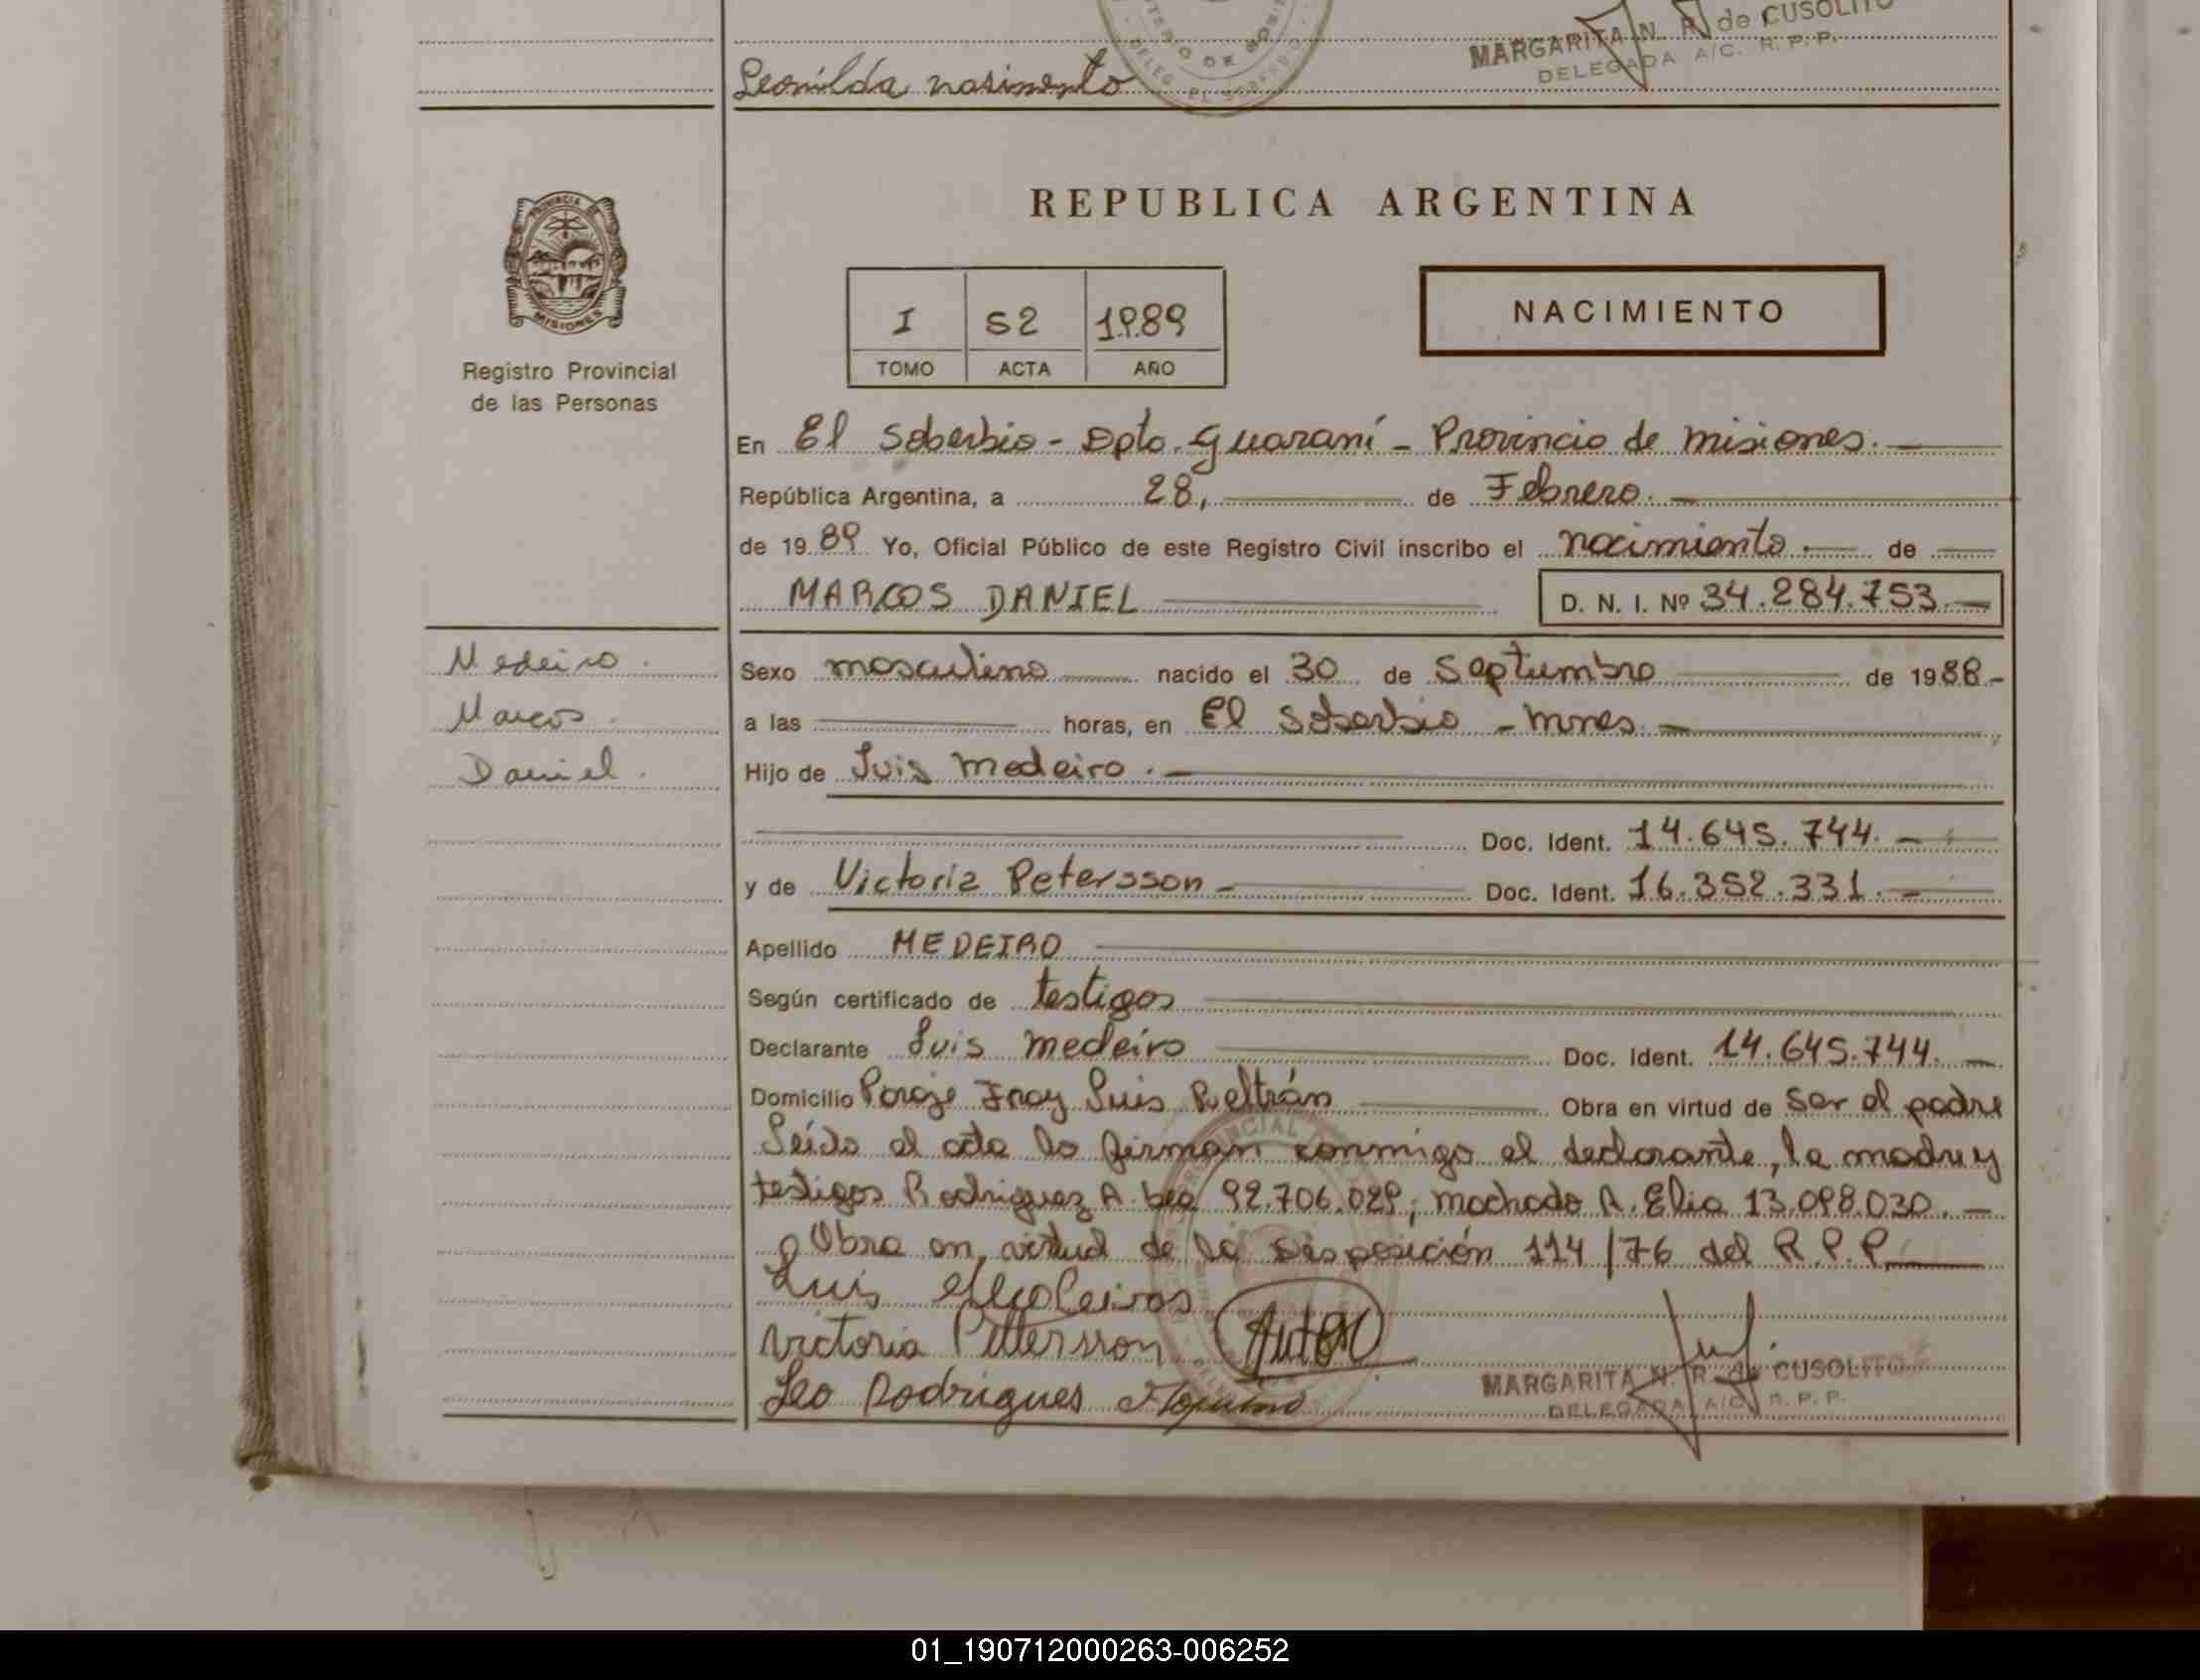 MARGARITA N. R. de CUSOLITO
DELEGADA A/C. R. P. P.
Leonilda nasimento
REPUBLICA ARGENTINA
PROVINCIA DE
MISIONES
Registro Provincial
de las Personas
I 52 1989
TOMO ACTA AÑO
NACIMIENTO
En El Soberbio - Dpto. Guaraní - Provincia de misiones. -
República Argentina, a 28, de Febrero. -
de 19 89 Yo, Oficial Público de este Registro Civil inscribo el nacimiento . - de
MARCOS DANIEL D. N. I. Nº 34.284.753.-
Medeiro.
Marcos.
Daniel.
Sexo masculino nacido el 30 de Septiembre de 1988.-
a las horas, en El Soberbio - mnes. -
Hijo de Luis medeiro. -
Doc. Ident. 14.645.744. -
y de Victoria Petersson - Doc. Ident. 16.352.331. -
Apellido MEDEIRO
Según certificado de testigos
Declarante Luis medeiro Doc. Ident. 14.645.744. -
Domicilio Paraje Fray Luis Beltrán Obra en virtud de Ser el padre
Leída el acta la firman conmigo el declarante, la madre y
testigos Rodriguez A. Leo 92.706.029; machado A. Elio 13.098.030. -
Obra en virtud de la Disposición 114/76 del R.P.P.
Luis Medeiros
Victoria Pettersson
Leo Rodrigues
MARGARITA N. R. de CUSOLITO
DELEGADA A/C. R. P. P.
01_190712000263-006252